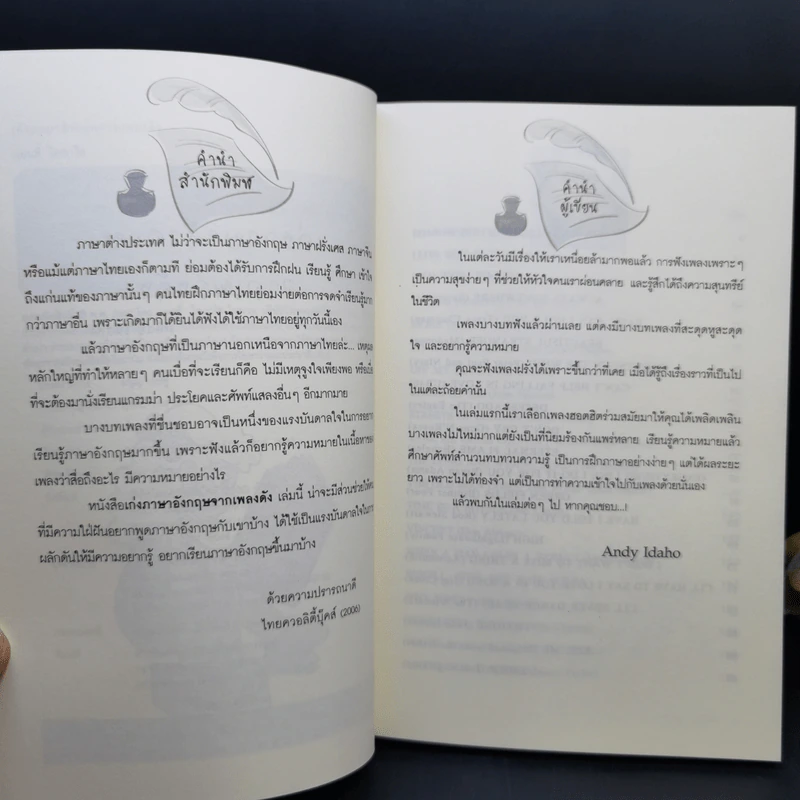 คำนำ
สำนักพิมพ์
ภาษาต่างประเทศ ไม่ว่าจะเป็นภาษาอังกฤษ ภาษาฝรั่งเศส ภาษาจีน
หรือแม้แต่ภาษาไทยเองก็ตามที ย่อมต้องได้รับการฝึกฝน เรียนรู้ ศึกษา เข้าใจ
ถึงแก่นแท้ของภาษานั้นๆ คนไทยฝึกภาษาไทยย่อมง่ายต่อการจดจำเรียนรู้มาก
กว่าภาษาอื่น เพราะเกิดมาก็ได้ยินได้ฟังได้ใช้ภาษาไทยอยู่ทุกวันนี้เอง
แล้วภาษาอังกฤษที่เป็นภาษานอกเหนือจากภาษาไทยล่ะ...
หลักใหญ่ที่ทำให้หลายๆ คนเบื่อที่จะเรียนก็คือ ไม่มีเหตุจูงใจเพียงพอ
ที่จะต้องมานั่งเรียนแกรมม่า ประโยคและศัพท์แสลงอื่นๆ อีกมากมาย
บางบทเพลงที่ชื่นชอบอาจเป็นหนึ่งของแรงบันดาลใจในการ
เรียนรู้ภาษาอังกฤษมากขึ้น เพราะฟังแล้วก็อยากรู้ความหมายในเนื้อหาของ
เพลงว่าสื่อถึงอะไร มีความหมายอย่างไร
หนังสือเก่งภาษาอังกฤษจากเพลงดัง เล่มนี้ น่าจะมีส่วนช่วยให้
ที่มีความใฝ่ฝันอยากพูดภาษาอังกฤษกับเขาบ้าง ได้ใช้เป็นแรงบันดาลใจในการ
ผลักดันให้มีความอยากรู้ อยากเรียนภาษาอังกฤษขึ้นมาบ้าง
ด้วยความปรารถนาดี
ไทยควอลิตี้บุ๊คส์ (2006)
คำนำ
ผู้เขียน
ในแต่ละวันมีเรื่องให้เราเหนื่อยล้ามากพอแล้ว การฟังเพลงเพราะๆ
เป็นความสุขง่ายๆ ที่ช่วยให้หัวใจคนเราผ่อนคลาย และรู้สึกได้ถึงความสุนทรีย์
ในชีวิต
เพลงบางบทฟังแล้วผ่านเลย แต่คงมีบางบทเพลงที่สะดุดหูสะดุด
ใจ และอยากรู้ความหมาย
คุณจะฟังเพลงฝรั่งได้เพราะขึ้นกว่าที่เคย เมื่อได้รู้ถึงเรื่องราวที่เป็นไป
ในแต่ละถ้อยคำนั้น
ในเล่มแรกนี้เราเลือกเพลงฮอตฮิตร่วมสมัยมาให้คุณได้เพลิดเพลิน
บางเพลงไม่ใหม่มากแต่ยังเป็นที่นิยมร้องกันแพร่หลาย เรียนรู้ความหมายแล้ว
ศึกษาศัพท์สำนวนทบทวนความรู้ เป็นการฝึกภาษาอย่างง่ายๆ แต่ได้ผลระยะ
ยาว เพราะไม่ได้ท่องจำ แต่เป็นการทำความเข้าใจไปกับเพลงด้วยนั่นเอง
แล้วพบกันในเล่มต่อๆ ไป หากคุณชอบ...!
Andy Idaho